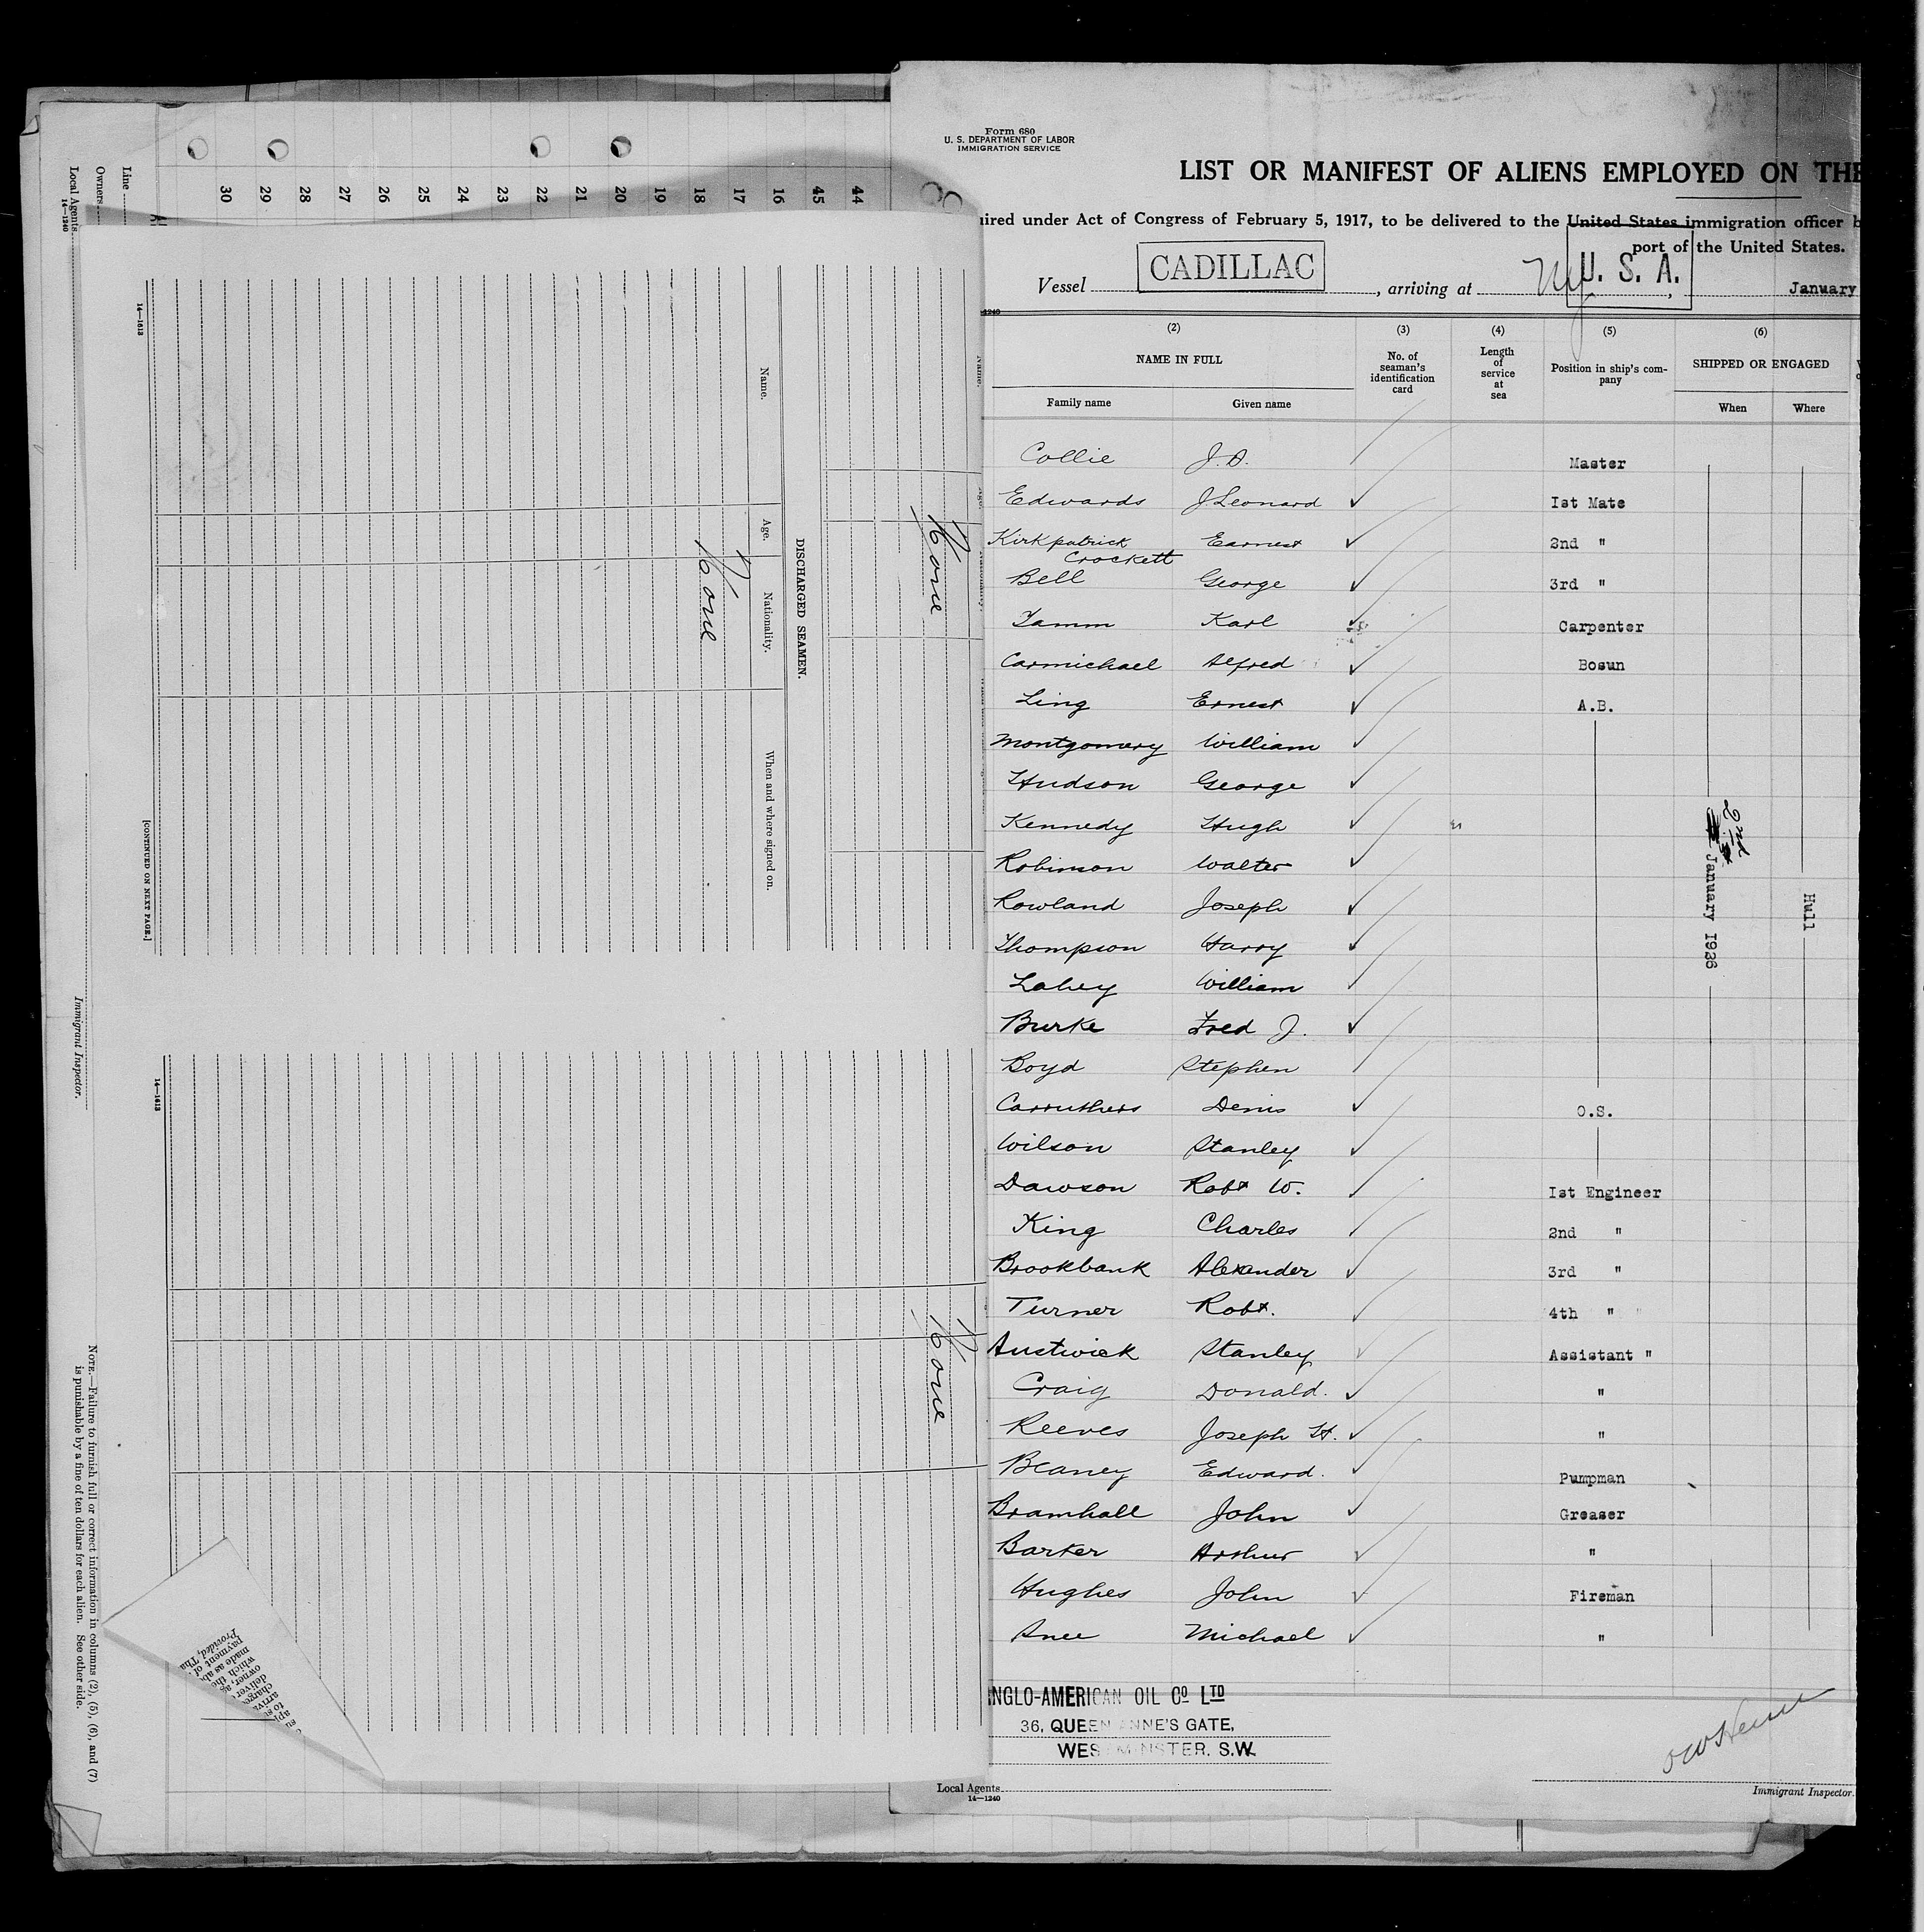 Line
Owners
Local Agents
14—1240
30 29 28 27 26 25 24 23 22 21 20 19 18 17 16 45 44
14—1613
[CONTINUED ON NEXT PAGE.]
Immigrant Inspector.
14—1613
NOTE.—Failure to furnish full or correct information in columns (2), (5), (6), and (7)
is punishable by a fine of ten dollars for each alien. See other side.
DISCHARGED SEAMEN.
Name. Age. Nationality. When and where signed on.
None
None
None
Form 680
U. S. DEPARTMENT OF LABOR
IMMIGRATION SERVICE
LIST OR MANIFEST OF ALIENS EMPLOYED ON THE
uired under Act of Congress of February 5, 1917, to be delivered to the United States immigration officer b
port of the United States.
Vessel CADILLAC, arriving at NY U. S. A., January
(2) (3) (4) (5) (6)
NAME IN FULL No. of seaman's identification card Length of service at sea Position in ship's company SHIPPED OR ENGAGED
Family name Given name When Where
Collie J. D. Master
Edwards J. Leonard 1st Mate
Kirkpatrick Earnest 2nd "
Crockett
Bell George 3rd "
Tamm Karl Carpenter
Carmichael Alfred Bosun
Ling Ernest A.B.
Montgomery William
Hudson George
Kennedy Hugh
Robinson Walter
Rowland Joseph
Thompson Harry
Lahey William
Burke Fred J.
Boyd Stephen
Carruthers Denis O.S.
Wilson Stanley
Dawson Robt W. 1st Engineer
King Charles 2nd "
Brookbank Alexander 3rd "
Turner Robt. 4th "
Austwick Stanley Assistant "
Craig Donald. "
Reeves Joseph H. "
Beaney Edward. Pumpman
Bramhall John Greaser
Barker Arthur "
Hughes John Fireman
Michael "
2nd
January 1936
Hull
NGLO-AMERICAN OIL CO LTD
36, QUEEN ANNE'S GATE,
WESTMINSTER. S.W.
Local Agents
14—1240
Immigrant Inspector.